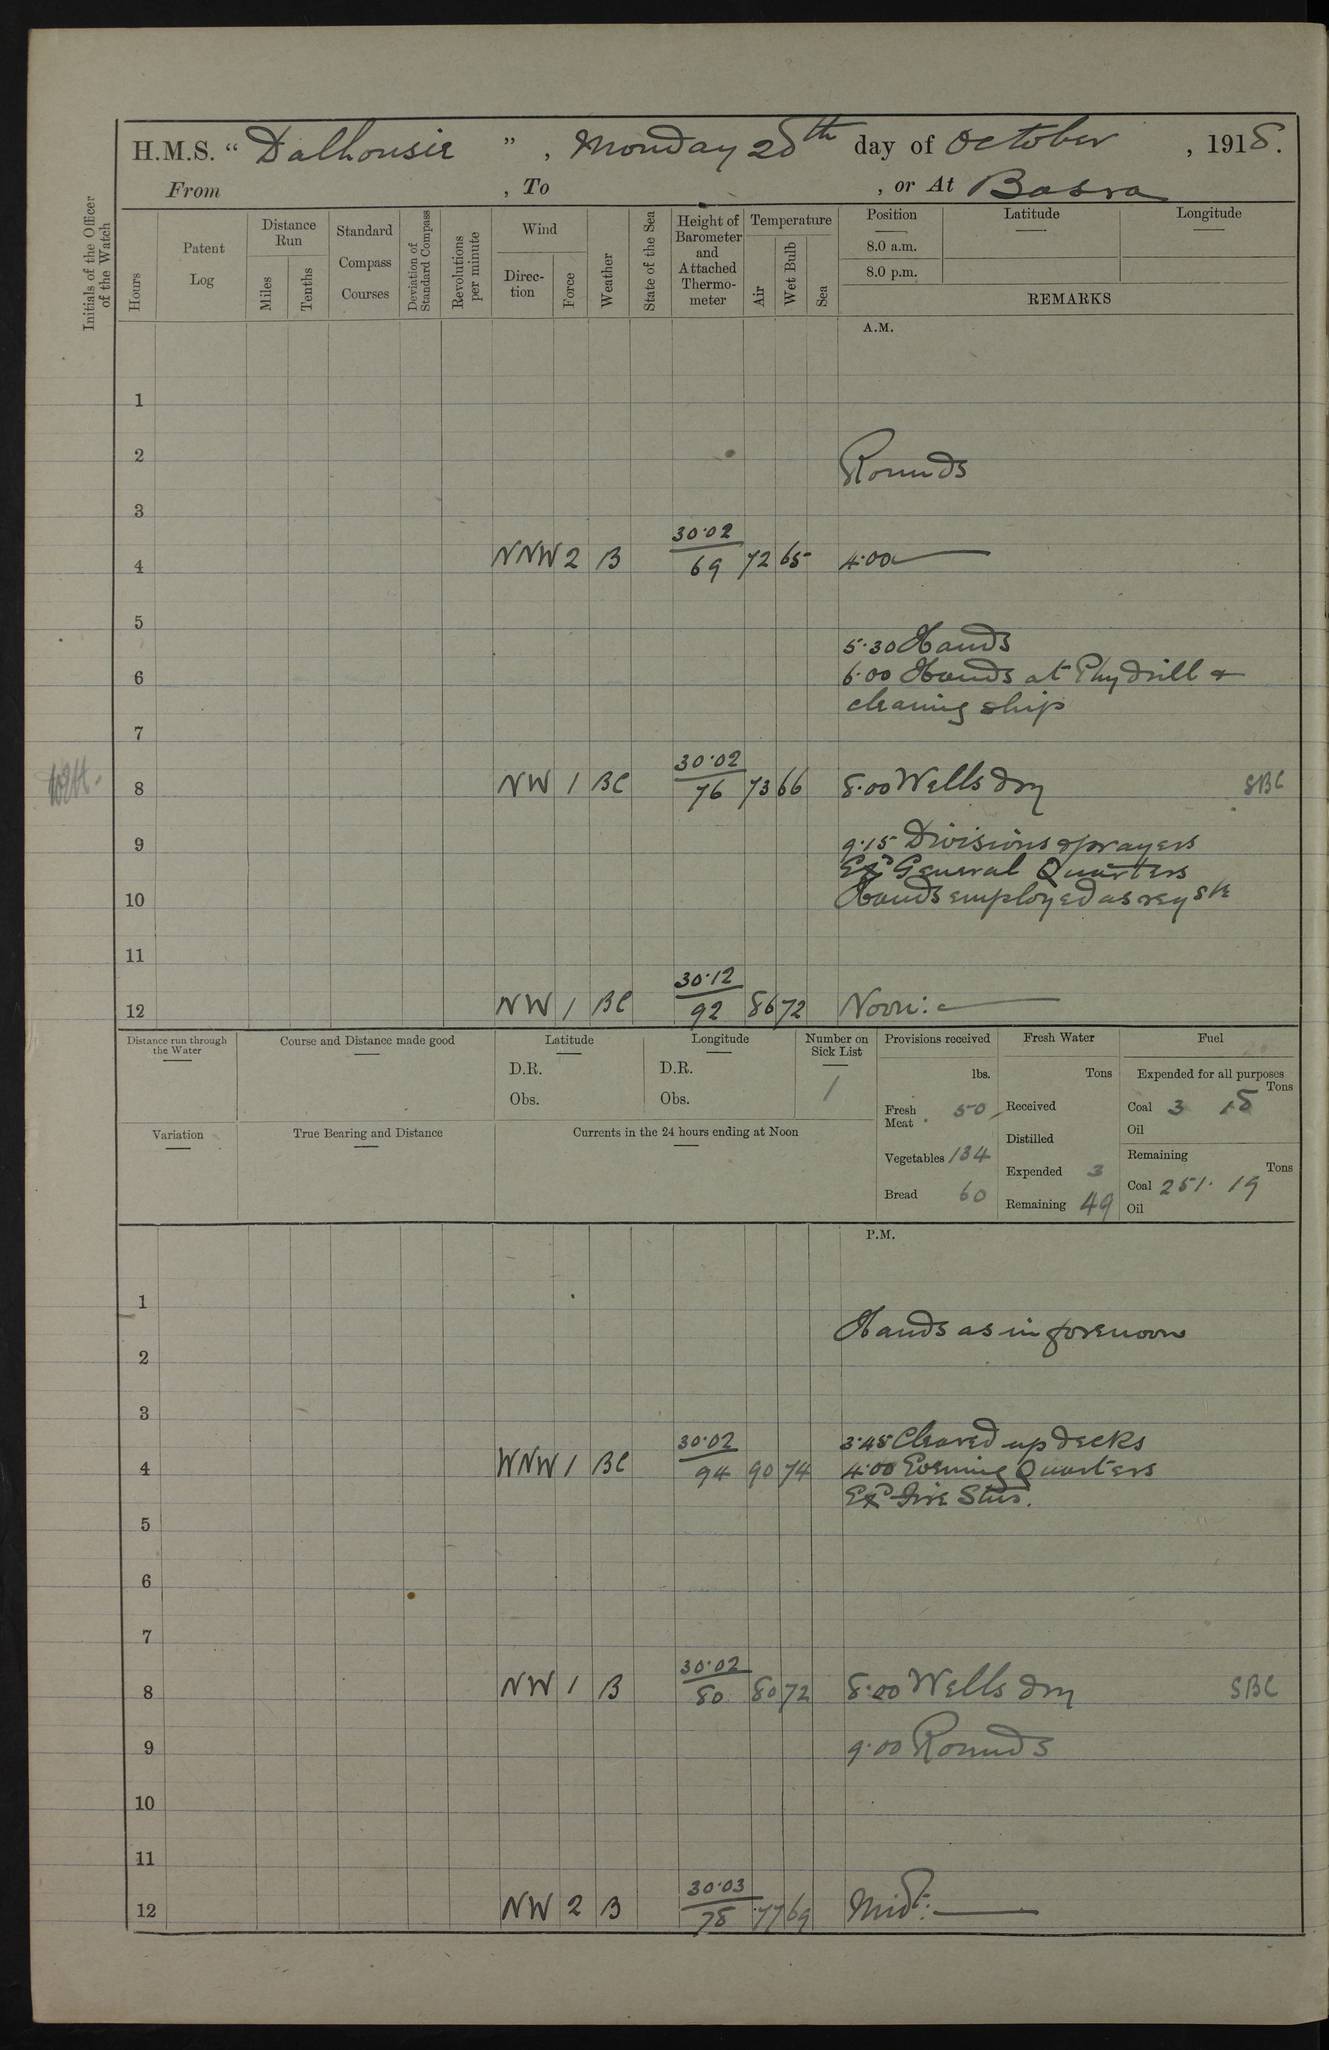 H.M.S. “ Dalhousie ” , Monday 28th day of October , 1918.
From , To , or At Basra
Initials of the Officer of the Watch
Hours
Patent Log
Distance Run
Miles
Tenths
Standard Compass Courses
Deviation of Standard Compass
Revolutions per minute
Wind
Direc-tion
Force
Weather
State of the Sea
Height of Barometer and Attached Thermo-meter
Temperature
Air
Wet Bulb
Sea
Position Latitude Longitude
8.0 a.m.
8.0 p.m.
REMARKS
A.M.
1
2 Rounds
3
4 NNW 2 B 30·02 69 72 65 4·00
5
5·30 Hands
6 6·00 Hands at Phy Drill &
cleaning ship
7
8 NW 1 BC 30·02 76 73 66 8·00 Wells dry SBC
9 9·15 Divisions & prayers
Exd General Quarters
10 Hands employed as reqste
11
12 NW 1 BC 30·12 92 86 72 Noon:
Distance run through the Water
Course and Distance made good
Latitude
D.R.
Obs.
Longitude
D.R.
Obs.
Number on Sick List
1
Provisions received
lbs.
Fresh Meat 50
Vegetables 134
Bread 60
Fresh Water
Tons
Received
Distilled
Expended 3
Remaining 49
Fuel
Expended for all purposes
Tons
Coal 3 18
Oil
Remaining
Tons
Coal 251· 19
Oil
Variation
True Bearing and Distance
Currents in the 24 hours ending at Noon
P.M.
1
Hands as in forenoon
2
3
3·45 Cleared up decks
4 WNW 1 BC 30·02 94 90 74 4·00 Evening Quarters
Exd Fire Stns.
5
6
7
8 NW 1 B 30·02 80 80 72 8·00 Wells dry SBC
9 9·00 Rounds
10
11
12 NW 2 B 30·03 78 77 69 Midt: